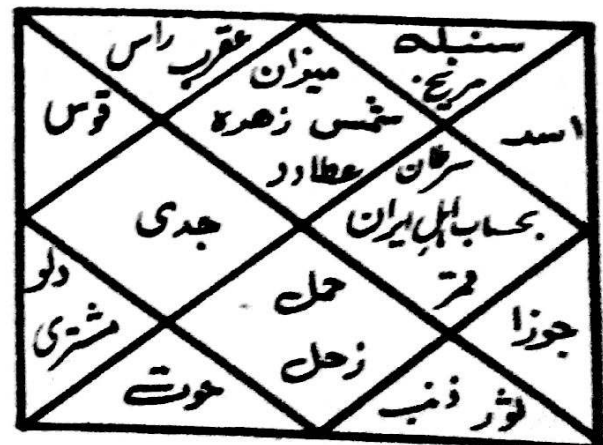 سنبلہ
مریخ
عقرب راس
میزان
شمس زھرہ
عطارد
اسد
قوس
سرطان
بحساب اہلِ ایران
قمر
جدی
دلو
مشتری
حمل
زحل
جوزا
حوت
ثور ذنب